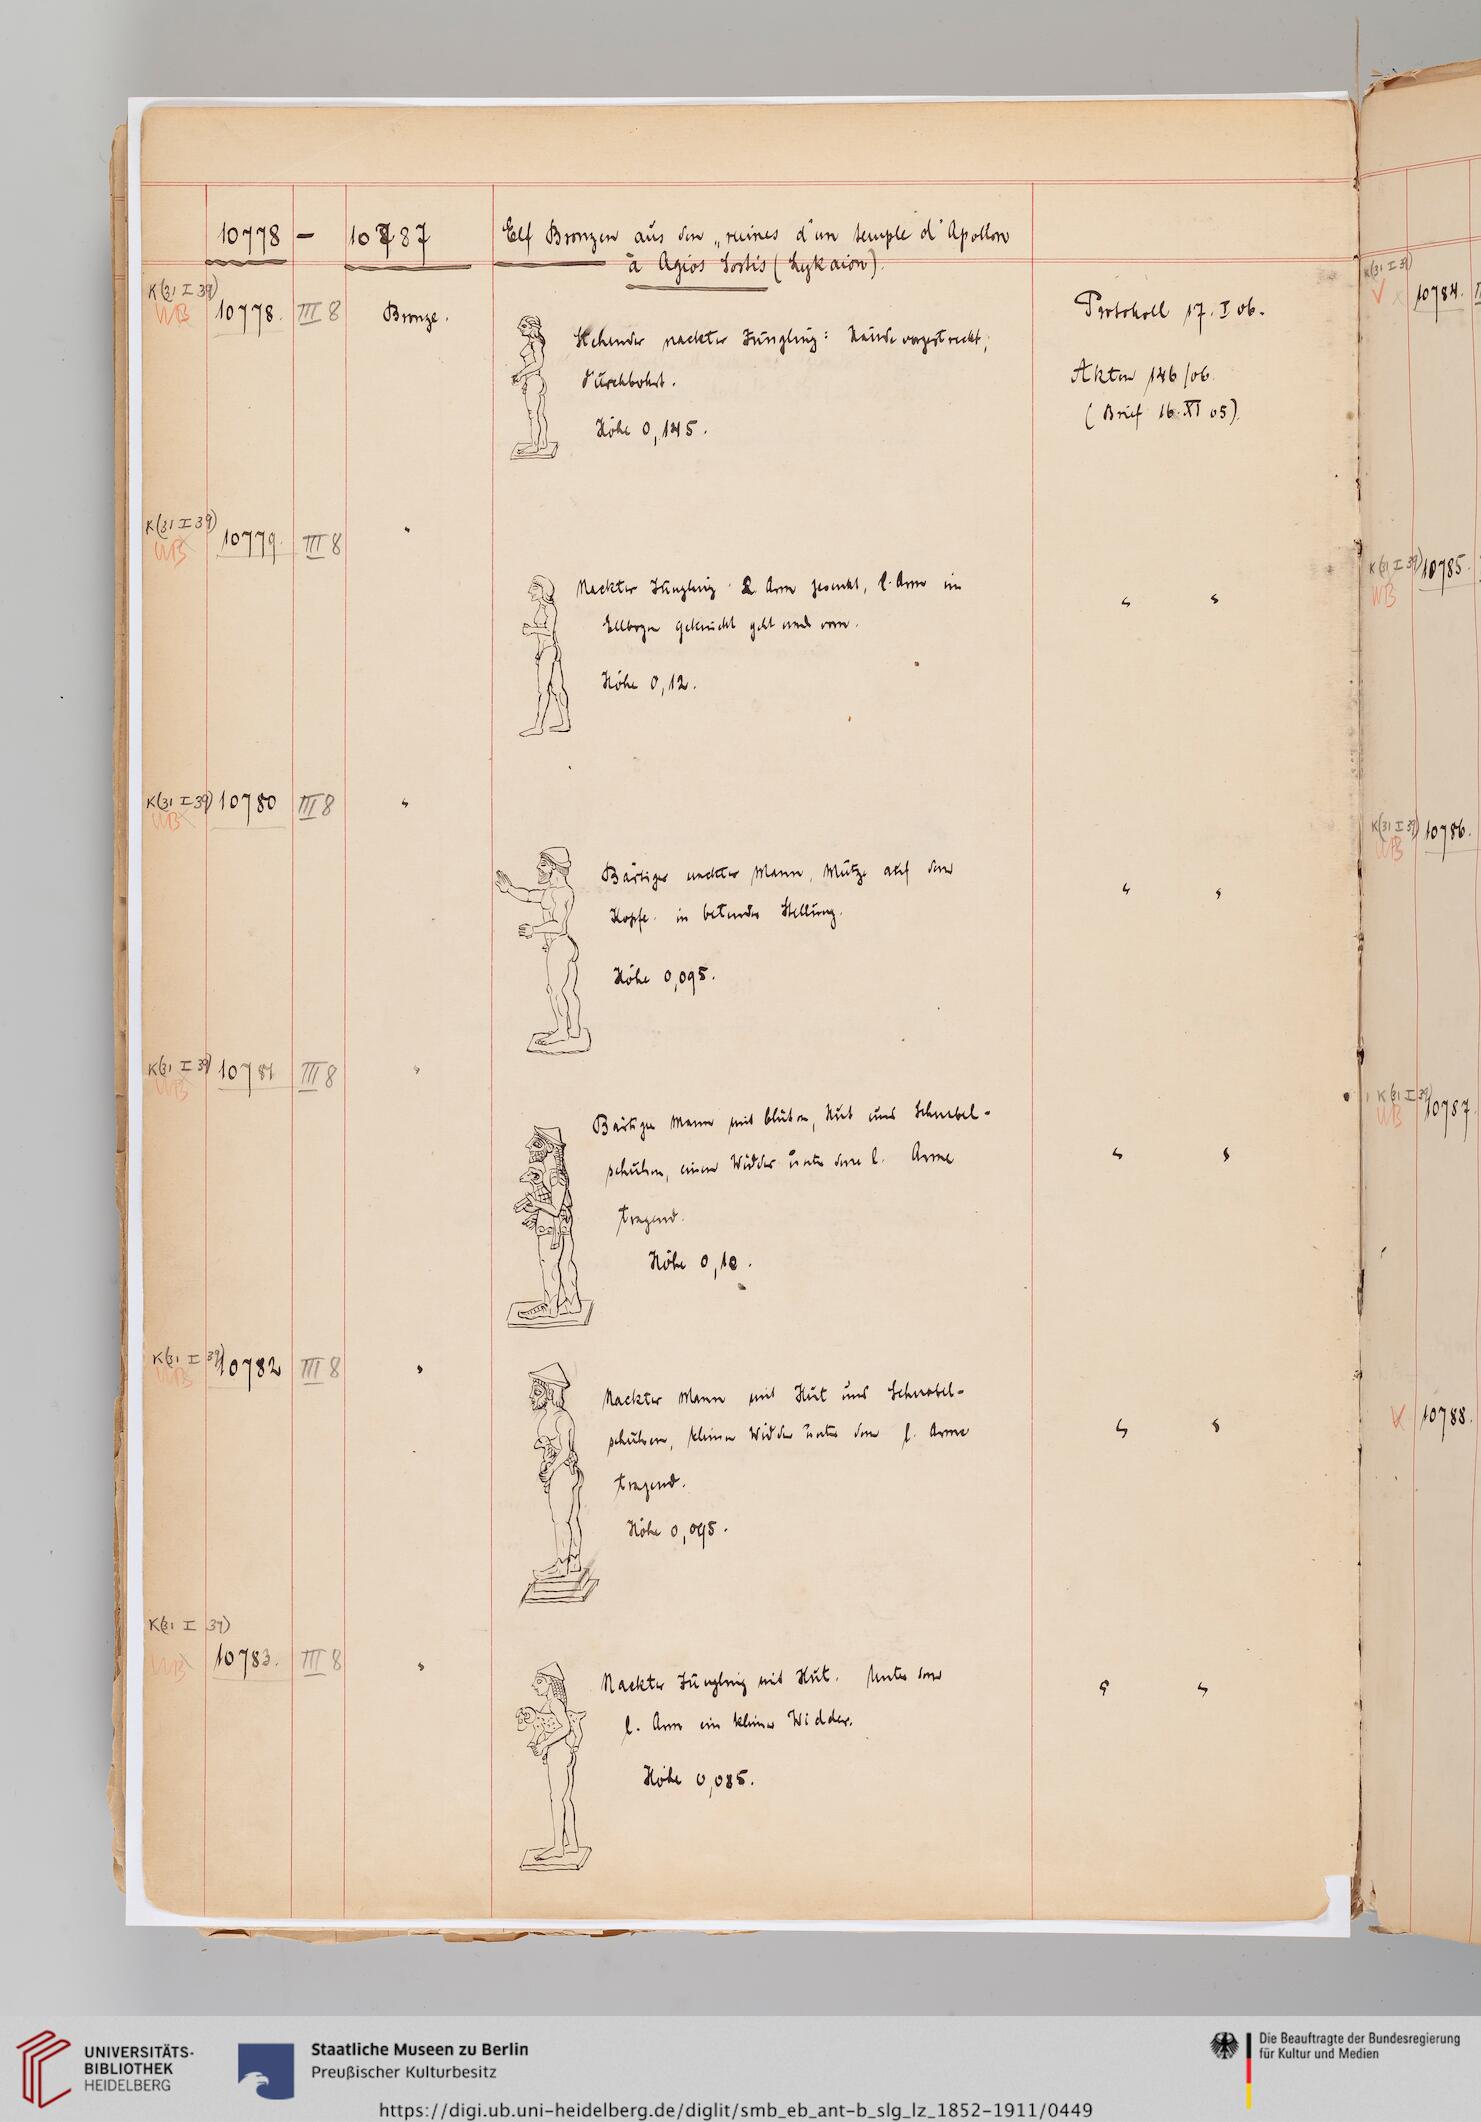 10778 — 10787 Elf Bronzen aus den „ruines d'un temple d'Apollon
à Agios Sostis (Lykaion).
K(31 I 39)
WB 10778. III 8 Bronze.
Stehender nackter Jüngling: Hände vorgestreckt,
durchbohrt.
Höhe 0,145.
Protokoll 17. I 06.
Akten 146/06.
(Brief 16. XI 05).
K(31 I 39)
WB 10779. III 8 "
Nackter Jüngling. R. Arm gesenkt, l. Arm im
Ellbogen geknickt geht nach vorn.
Höhe 0,12.
" "
K(31 I 39)
WB 10780 III 8 "
Bärtiger nackter Mann, Mütze auf dem
Kopfe. in betender Stellung.
Höhe 0,095.
" "
K(31 I 39)
WB 10781 III 8 "
Bärtiger Mann mit, Hut und Schnabel-
schuhen, einen Widder unter dem l. Arme
tragend.
Höhe 0,10.
" "
K(31 I 39)
WB 10782 III 8 "
Nackter Mann mit Hut und Schnabel-
schuhen, kleinen Widder unter dem l. Arme
tragend.
Höhe 0,095.
" "
K(31 I 39)
WB 10783. III 8 "
Nackter Jüngling mit Hut. Unter dem
l. Arm ein kleiner Widder.
Höhe 0,085.
" "
K(31 I 39)
10784.
K(31 I 39)
WB 10785.
K(31 I 39)
WB 10786.
K(31 I 39)
WB 10787.
10788.
UNIVERSITÄTS-
BIBLIOTHEK
HEIDELBERG
Staatliche Museen zu Berlin
Preußischer Kulturbesitz
Die Beauftragte der Bundesregierung
für Kultur und Medien
https://digi.ub.uni-heidelberg.de/diglit/smb_eb_ant-b_slg_lz_1852-1911/0449